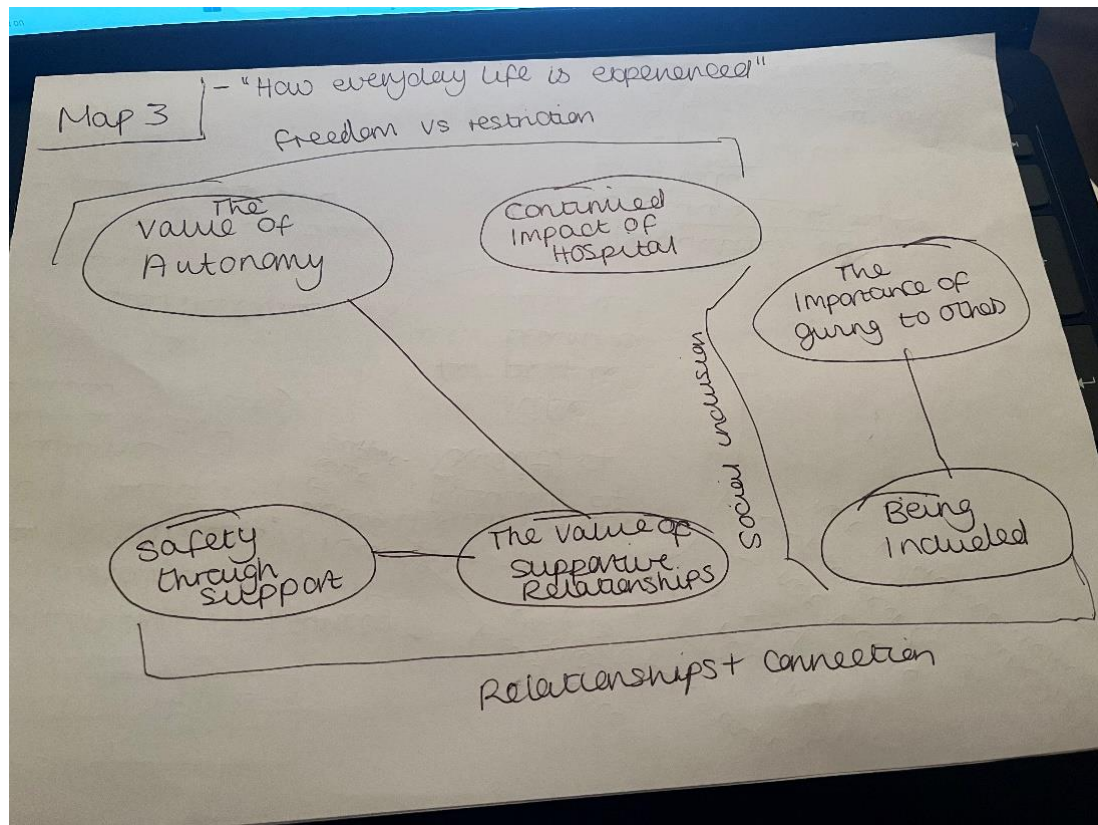 Map 3
- "How everyday life is experienced"
Freedom vs restriction
The
Value of
Autonomy
Continued
Impact of
Hospital
The
Importance of
giving to others
Social inclusion
Safety
through
support
The Value of
Supportive
Relationships
Being
Included
Relationships + Connection